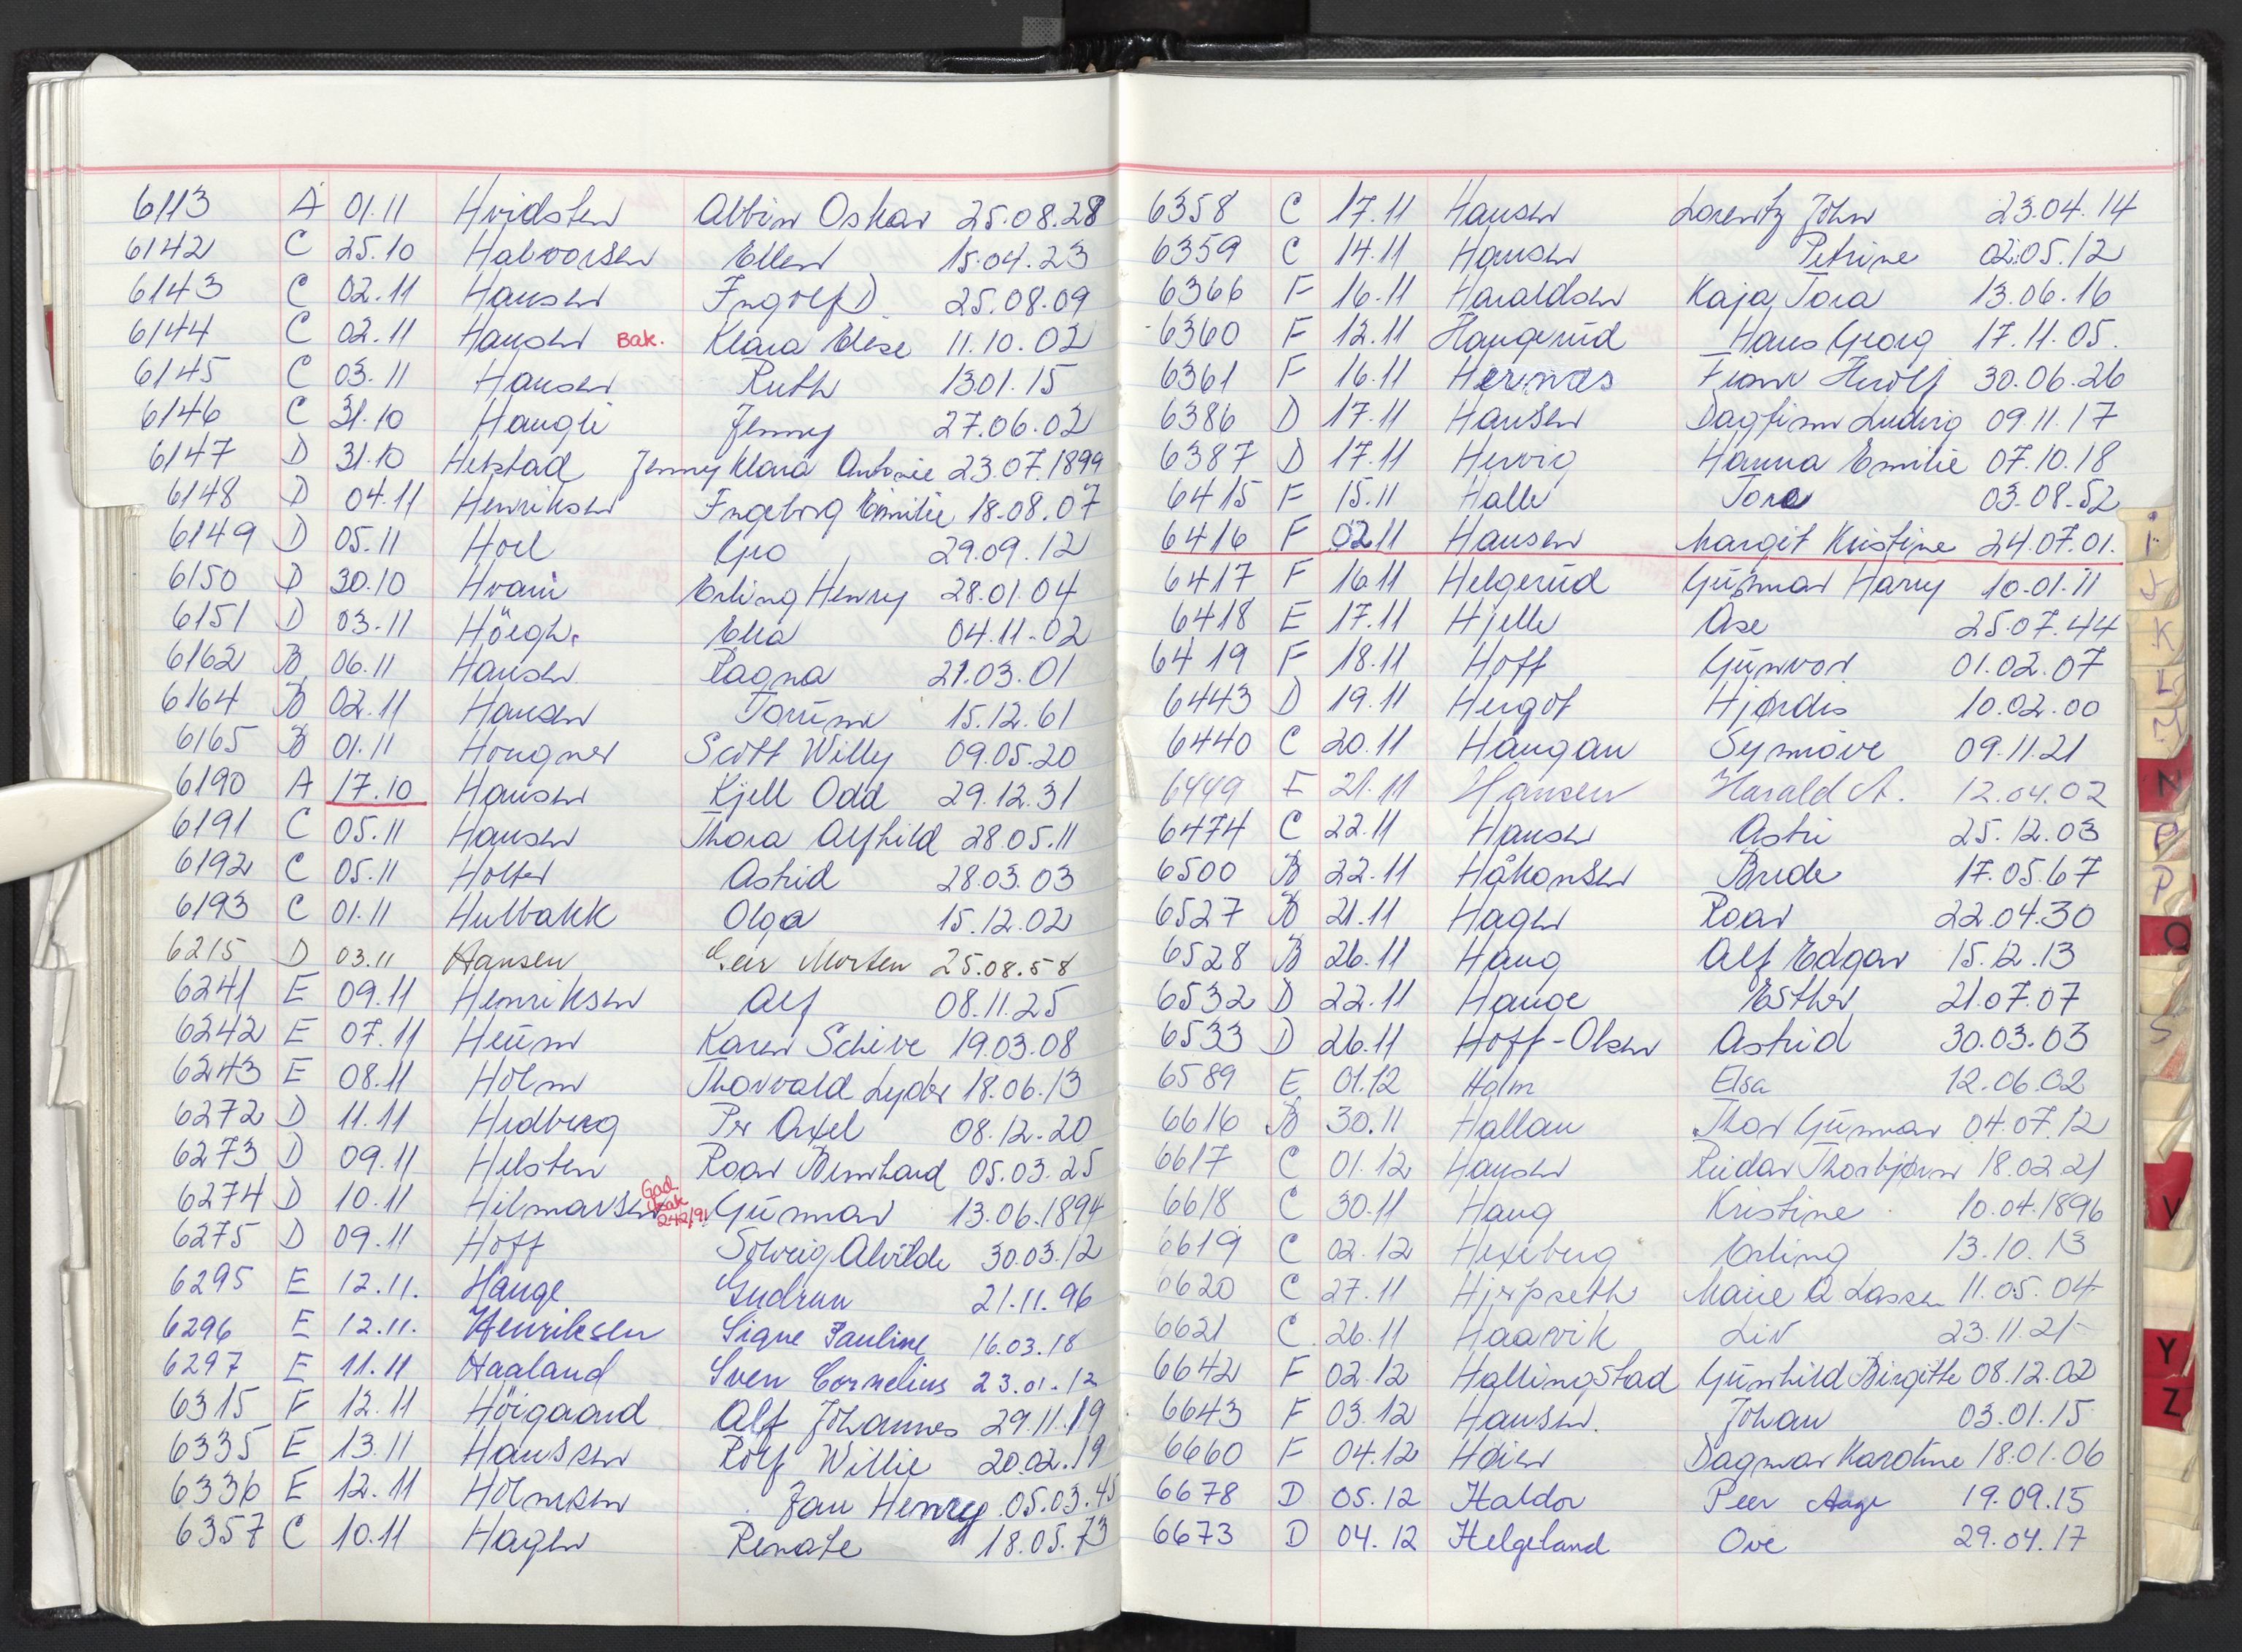 6113 A 01.11 Hvidsten Albin Oskar 25.08.28
6142 C 25.10 Halvorsen Ellen 15.04.23
6143 C 02.11 Hansen Ingolf D. 25.08.09
6144 C 02.11 Hansen Bak. Klara Elise 11.10.02
6145 C 03.11 Hansen Ruth 1301.15
6146 C 31.10 Haugli Jenny 27.06.02
6147 D 31.10 Helstad Jenny Klara Antonie 23.07.1899
6148 D 04.11 Henriksen Ingeborg Emilie 18.08.07
6149 D 05.11 Hoel Gro 29.09.12
6150 D 30.10 Hvam Erling Henry 28.01.04
6151 D 03.11 Höegh Elia 04.11.02
6162 B 06.11 Hansen Ragna 21.03.01
6164 B 02.11 Hansen Torunn 15.12.61
6165 B 01.11 Hougner Scott Willy 09.05.20
6190 A 17.10 Hansen Kjell Odd 29.12.31
6191 C 05.11 Hansen Thora Alfhild 28.05.11
6192 C 05.11 Holter Astrid 28.03.03
6193 C 01.11 Hulbakk Olga 15.12.02
6215 D 03.11 Hansen Geir Morten 25.08.58
6241 E 09.11 Henriksen Alf 08.11.25
6242 E 07.11 Heum Karen Scheve 19.03.08
6243 E 08.11 Holm Thorvald Lyder 18.06.13
6272 D 11.11 Hedberg Per Axel 08.12.20
6273 D 09.11 Helsten Roar Bernhard 05.03.25
6274 D 10.11 Hilmarsen Gad. bak 242/91 Gunnar 13.06.1894
6275 D 09.11 Hoff Solveig Alvilde 30.03.12
6295 E 12.11. Hauge Gudrun 21.11.96
6296 E 12.11. Henriksen Signe Pauline 16.03.18
6297 E 11.11 Haaland Sven Cornelius 23.01.12
6315 F 12.11 Höigaard Alf Johannes 29.11.19
6335 E 13.11 Hanssen Rolf Willie 20.02.19
6336 E 12.11 Holmsen Jan Henry 05.03.45
6357 C 10.11 Hagen Renate 18.05.73
6358 C 17.11 Hansen Lorentz John 23.04.14
6359 C 14.11 Hansen Petrine 02.05.12
6366 F 16.11 Haraldsen Kaja Tora 13.06.16
6360 F 12.11 Haugerud Hans Georg 17.11.05.
6361 F 16.11 Hernæs Finn Herolf 30.06.26
6386 D 17.11 Hansen Dagfinn Ludvig 09.11.17
6387 D 17.11 Hervig Hanna Emilie 07.10.18
6415 F 15.11 Halle Tore 03.08.52
6416 F 02.11 Hansen Margit Kristine 24.07.01.
6417 F 16.11 Helgerud Gunnar Harry 10.01.11
6418 E 17.11 Hjelle Åse 25.07.44
6419 F 18.11 Hoff Gunvor 01.02.07
6443 D 19.11 Hergot Hjørdis 10.02.00
6440 C 20.11 Haugan Synnöve 09.11.21
6449 F 21.11 Hansen Harald A. 12.04.02
6474 C 22.11 Hansen Astri 25.12.03
6500 B 22.11 Håkonsen Brede 17.05.67
6527 B 21.11 Hagen Roar 22.04.30
6528 B 26.11 Haug Alf Edgar 15.12.13
6532 D 22.11 Hauge Esther 21.07.07
6533 D 26.11 Hoff-Olsen Astrid 30.03.03
6589 E 01.12 Holm Elsa 12.06.02
6616 B 30.11 Hallan Thor Gunnar 04.07.12
6617 C 01.12 Hansen Reidar Thorbjørn 18.02.21
6618 C 30.11 Haug Kristine 10.04.1896
6619 C 02.12 Hexeberg Erling 13.10.13
6620 C 27.11 Hjerpseth Marie 11.05.04
6621 C 26.11 Haarvik Liv 23.11.21
6642 F 02.12 Hallingstad Gunhild Birgitte 08.12.02
6643 F 03.12 Hansen Johan 03.01.15
6660 F 04.12 Høier Dagmar Karoline 18.01.06
6678 D 05.12 Haldor Peer Aage 19.09.15
6673 D 04.12 Helgeland Ove 29.04.17
i
J
K
L
M
N
O
P
Q
S
V
Y
Z